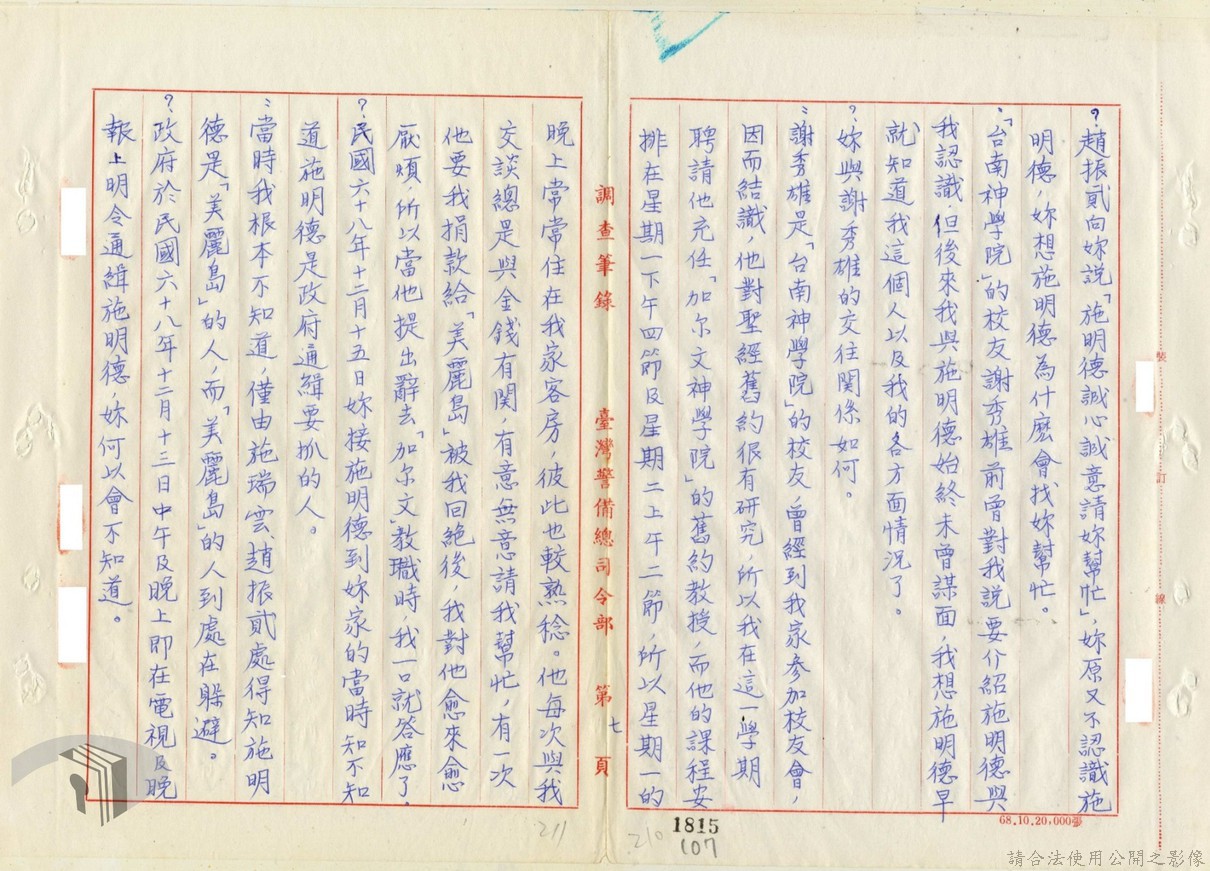 ？趙振貳向妳說「施明德誠心誠意請妳幫忙」，妳原又不認識施
明德，妳想施明德為什麼會找妳幫忙。
：「台南神學院」的校友謝秀雄前曾對我說要介紹施明德與
我認識，但後來我與施明德始終未曾謀面，我想施明德早
就知道我這個人以及我的各方面情況了。
？妳與謝秀雄的交往関係如何。
：謝秀雄是「台南神學院」的校友，曾經到我家參加校友會，
因而結識，他對聖經舊約很有研究，所以我在這一學期
聘請他充任「加尔文神學院」的舊約教授，而他的課程安
排在星期一下午四節及星期二上午二節，所以星期一的
調查筆錄 臺灣警備總司令部 第七頁
晚上常常住在我家客房，彼此也較熟稔。他每次與我
交談總是與金錢有関，有意無意請我幫忙，有一次
他要我捐款給「美麗島」被我回絕後，我對他愈來愈
厭煩，所以當他提出辭去「加尔文」教職時，我一口就答應了。
？民國六十八年十二月十五日妳接施明德到妳家的當時知不知
道施明德是政府通緝要抓的人。
：當時我根本不知道，僅由施瑞雲、趙振貳處得知施明
德是「美麗島」的人，而「美麗島」的人到處在躲避。
？政府於民國六十八年十二月十三日中午及晚上即在電視及晚
報上明令通緝施明德，妳何以會不知道。
裝
訂
線
68.10.20,000張
1815
107
210
211
請合法使用公開之影像